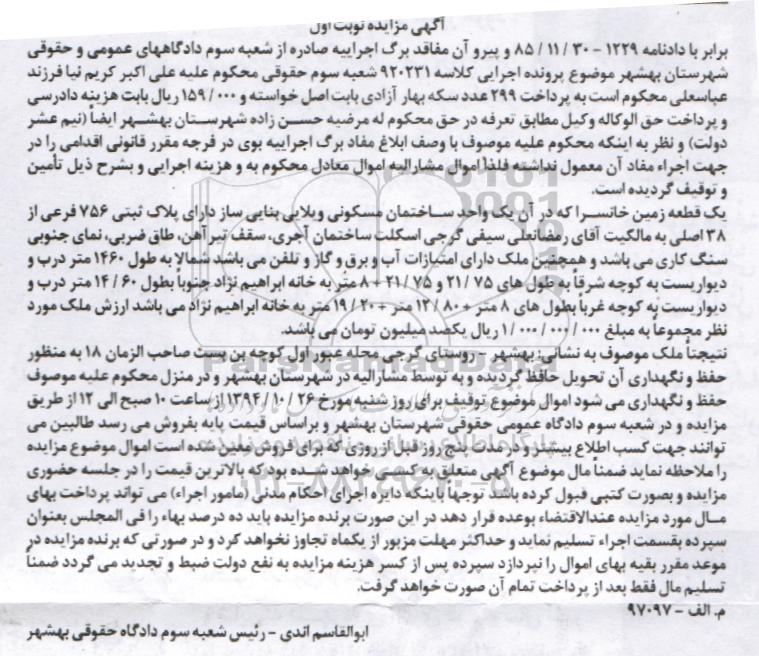 آگهی مزایده نوبت اول
برابر با دادنامه ۱۲۲۹ - ۳۰ / ۱۱ / ۸۵ و پیرو آن مفاقد برگ اجراییه صادره از شعبه سوم دادگاههای عمومی و حقوقی
شهرستان بهشهر موضوع پرونده اجرایی کلاسه ۹۲۰۲۳۱ شعبه سوم حقوقی محکوم علیه علی اکبر کریم نیا فرزند
عباسعلی محکوم است به پرداخت ۲۹۹ عدد سکه بهار آزادی بابت اصل خواسته و ۱۵۹/۰۰۰ ریال بابت هزینه دادرسی
و پرداخت حق الوکاله وکیل مطابق تعرفه در حق محکوم له مرضیه حسن زاده شهرستان بهشهر ایضاً (نیم عشر
دولت) و نظر به اینکه محکوم علیه موصوف با وصف ابلاغ مفاد برگ اجراییه بوی در فرجه مقرر قانونی اقدامی را در
جهت اجراء مفاد آن معمول نداشته فلذا اموال مشارالیه اموال معادل محکوم به و هزینه اجرایی و بشرح ذیل تأمین
و توقیف گردیده است.
یک قطعه زمین خانسرا که در آن یک واحد ساختمان مسکونی ویلایی بنایی ساز دارای پلاک ثبتی ۷۵۶ فرعی از
۳۸ اصلی به مالکیت آقای رمضانعلی سیفی گرجی اسکلت ساختمان آجری، سقف تیرآهن، طاق ضربی، نمای جنوبی
سنگ کاری می باشد و همچنین ملک دارای امتیازات آب و برق و گاز و تلفن می باشد شمالا به طول ۱۴۶۰ متر درب و
دیواریست به کوچه شرقاً به طول های ۷۵ / ۲۱ و ۷۵ / ۲۱ + ۸ متر به خانه ابراهیم نژاد جنوباً بطول ۶۰ / ۱۴ متر درب و
دیواریست به کوچه غرباً بطول های ۸ متر + ۸۰ / ۱۲ متر + ۲۰ / ۱۹ متر به خانه ابراهیم نژاد می باشد ارزش ملک مورد
نظر مجموعاً به مبلغ ۰۰۰ / ۰۰۰ / ۰۰۰ / ۱ ریال یکصد میلیون تومان می باشد.
نتیجتاً ملک موصوف به نشانی: بهشهر - روستای گرجی محله عبور اول کوچه بن بست صاحب الزمان ۱۸ به منظور
حفظ و نگهداری آن تحویل حافظ گردیده و به توسط مشارالیه در شهرستان بهشهر و در منزل محکوم علیه موصوف
حفظ و نگهداری می شود اموال موضوع توقیف برای روز شنبه مورخ ۲۶ / ۱۰ / ۱۳۹۴ از ساعت ۱۰ صبح الی ۱۲ از طریق
مزایده و در شعبه سوم دادگاه عمومی حقوقی شهرستان بهشهر و براساس قیمت پایه بفروش می رسد طالبین می
توانند جهت کسب اطلاع بیشتر و در مدت پنج روز قبل از روزی که برای فروش معین شده است اموال موضوع مزایده
را ملاحظه نماید ضمناً مال موضوع آگهی متعلق به کسی خواهد شده بود که بالاترین قیمت را در جلسه حضوری
مزایده و بصورت کتبی قبول کرده باشد توجها باینکه دایره اجرای احکام مدنی (مامور اجراء) می تواند پرداخت بهای
مال مورد مزایده عندالاقتضاء بوعده قرار دهد در این صورت برنده مزایده باید ده درصد بهاء را فی المجلس بعنوان
سپرده بقسمت اجراء تسلیم نماید و حداکثر مهلت مزبور از یکماه تجاوز نخواهد کرد و در صورتی که برنده مزایده در
موعد مقرر بقیه بهای اموال را نپردازد سپرده پس از کسر هزینه مزایده به نفع دولت ضبط و تجدید می گردد ضمناً
تسلیم مال فقط بعد از پرداخت تمام آن صورت خواهد گرفت.
م. الف - ۹۷۰۹۷
ابوالقاسم اندی - رئیس شعبه سوم دادگاه حقوقی بهشهر
ParsNamadData
۰۲۱-۸۸۳۴۹۶۷۰-۵